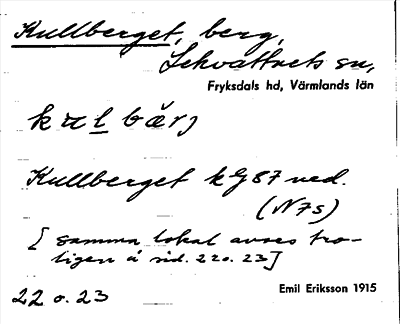 Kullberget, berg,
Lekvattnets sn,
Fryksdals hd, Värmlands län
Kullberget kg 87 ned.
(N7s)
[samma lokal avses tro-
ligen å sid. 22 o. 23]
22 o. 23
Emil Eriksson 1915